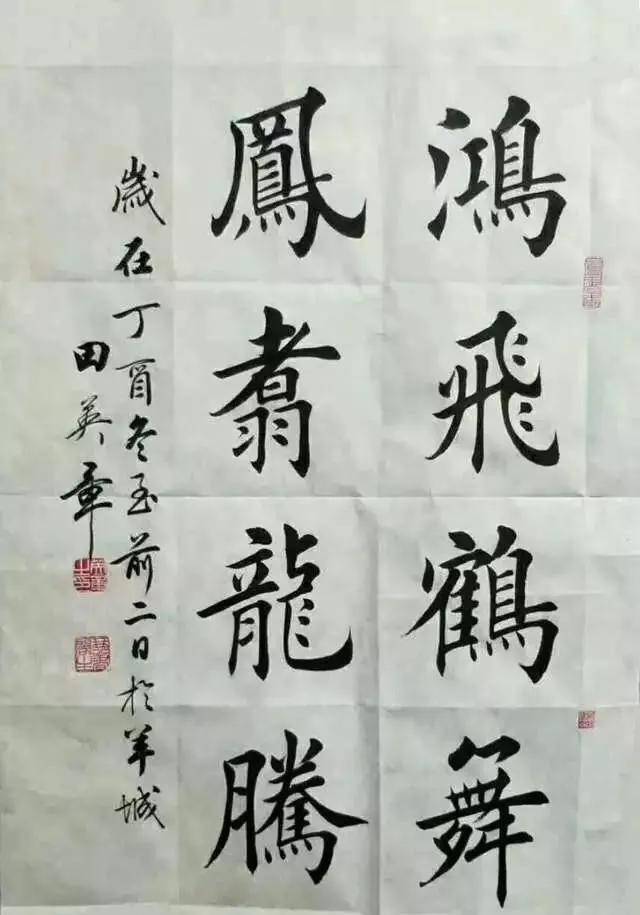 鴻飛鶴舞
鳳翥龍騰
歲在丁酉冬至前二日於羊城
田英章